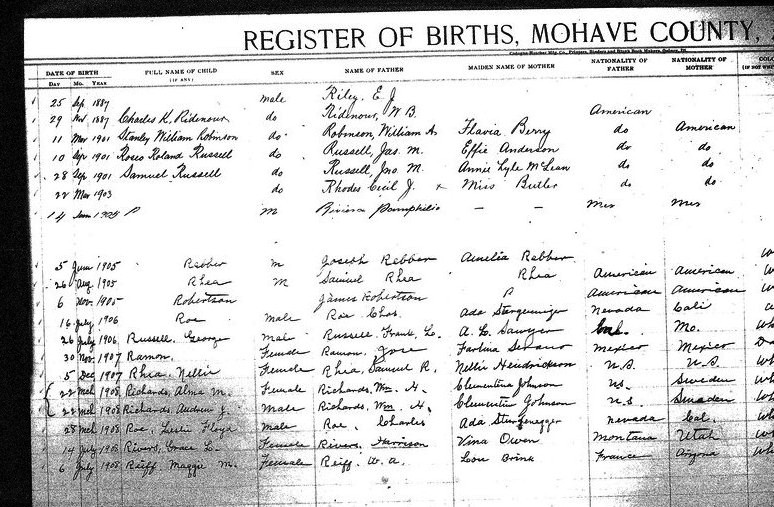 REGISTER OF BIRTHS, MOHAVE COUNTY,
DATE OF BIRTH FULL NAME OF CHILD SEX NAME OF FATHER MAIDEN NAME OF MOTHER NATIONALITY OF FATHER NATIONALITY OF MOTHER
DAY MO. YEAR (IF ANY)
25 Sep 1887 male Riley, E. J
29 1887 Charles K. Ridenour do Ridenour, W B. American
11 Mar 1901 Stanley William Robinson do Robinson, William A. Flavia Berry do American
10 Sep 1901 Ross Roland Russell do Russell, Jas. M. Effie Anderson do do
28 Sep 1901 Samuel Russell do Russell, Jno M. Annie Lyle McLean do do
22 Mar 1903 do Rhodes Cecil J. Miss Butler do do
14 M Riviera Pamphilio — — Mex Mex
5 June 1905 Rebber M Joseph Rebber Amelia Rebber
26 Aug 1905 Rhea M Samuel Rhea Rhea American American
6 Nov. 1905 Robertson James Robertson American American
16 July 1906 Roe Male Roe Chas. Ada Sturgenegger Nevada Cali
26 July 1906 Russell, George Male Russell, Frank, L. A. L. Sawyer Mo.
30 Nov. 1907 Ramon, Female Ramon, Jose Serano Mexico Mexico
5 Dec 1907 Rhea, Nellie Female Rhea, Samuel R. Nellie Hendrickson U.S. U.S.
22 Mch 1908 Richards, Alma M. Female Richards, Wm. H. Clementina Johnson U.S. Sweden
22 Mch 1908 Richards Andrew J. Male Richards, Wm. H. Clementin Johnson U.S Sweaden
28 Mch 1908 Roe, Leslie Floyd Male Roe, Charles Ada Sturgenegger Nevada Cal.
14 July 1908 Rivers, Grace L. Female Rivers, Harrison Vina Owen Montana Utah
6 July 1908 Reiff Maggie M. Female Reiff, W. A. Leon Brink France Arizona